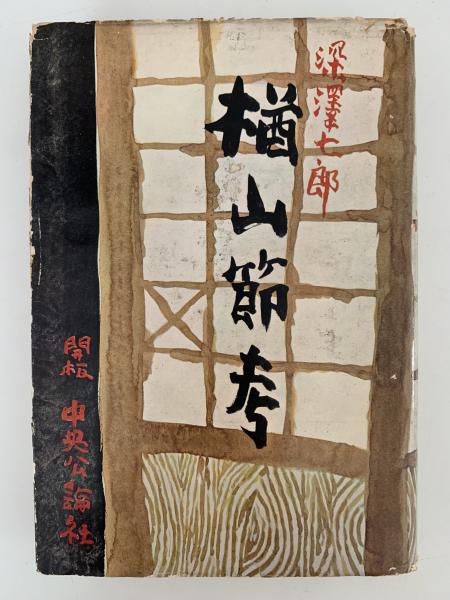 深澤七郎
楢山節考
開板 中央公論社